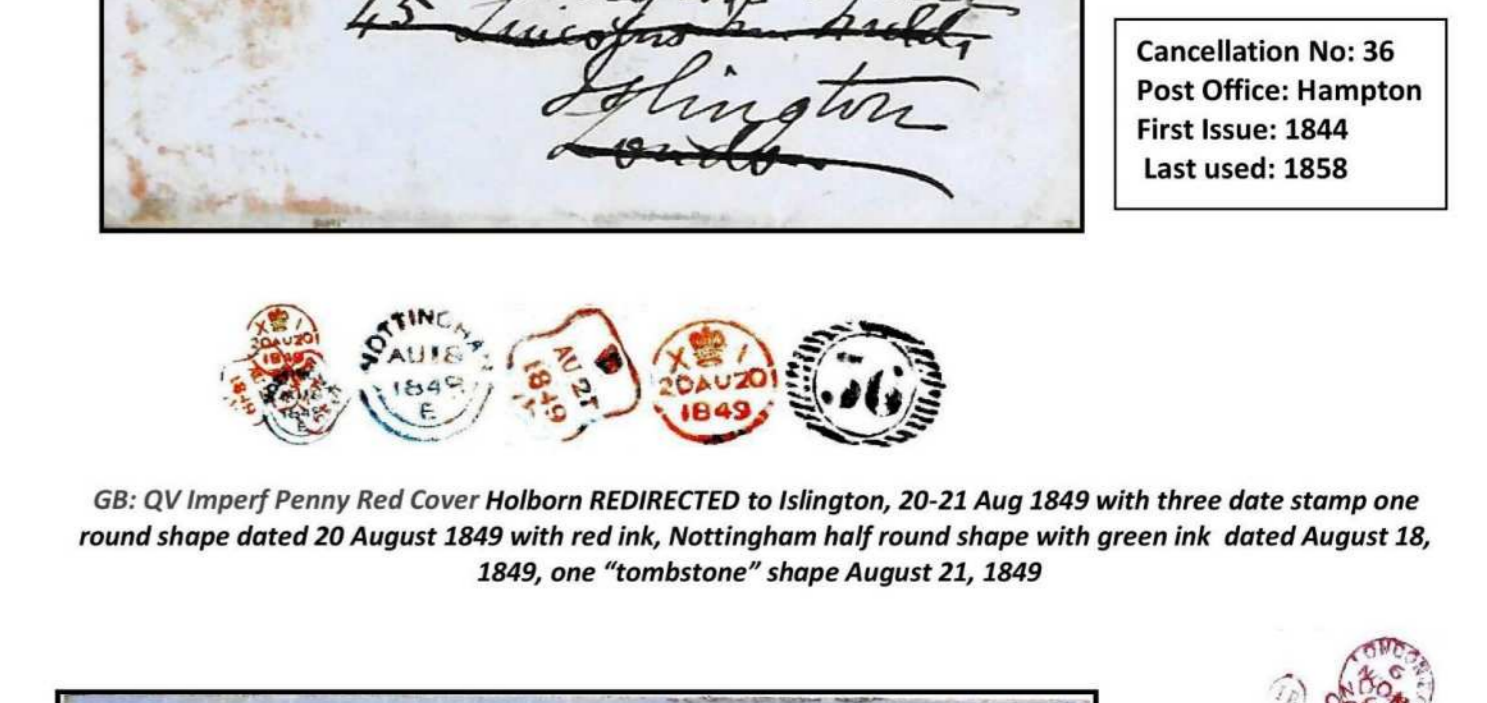 45 Lincolns Inn Fields
Islington
London
Cancellation No: 36
Post Office: Hampton
First Issue: 1844
Last used: 1858
X 1
20AU20
1849
1849
E
NOTTINGHAM
AU 18
1849
E
AU 21
1849
X 1
20AU20
1849
36
GB: QV Imperf Penny Red Cover Holborn REDIRECTED to Islington, 20-21 Aug 1849 with three date stamp one
round shape dated 20 August 1849 with red ink, Nottingham half round shape with green ink dated August 18,
1849, one “tombstone” shape August 21, 1849
LONDON